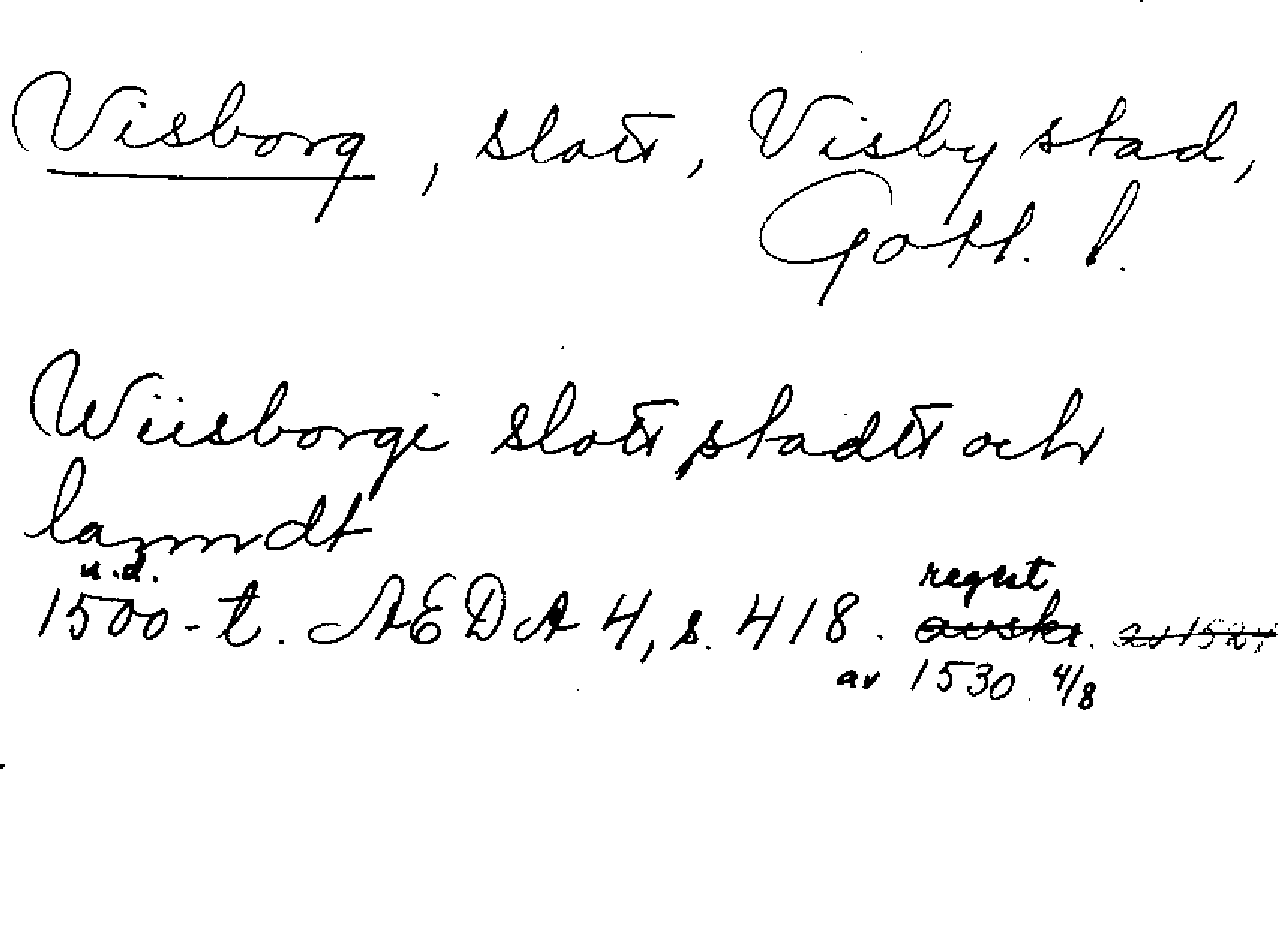 Visborg, slott, Visby stad,
Gotl. l.
Wiisborgi slott stadtt och
lanndt
u.d.
1500-t. AEDA 4, s. 418. regest
avskr.
av 1530 4/8